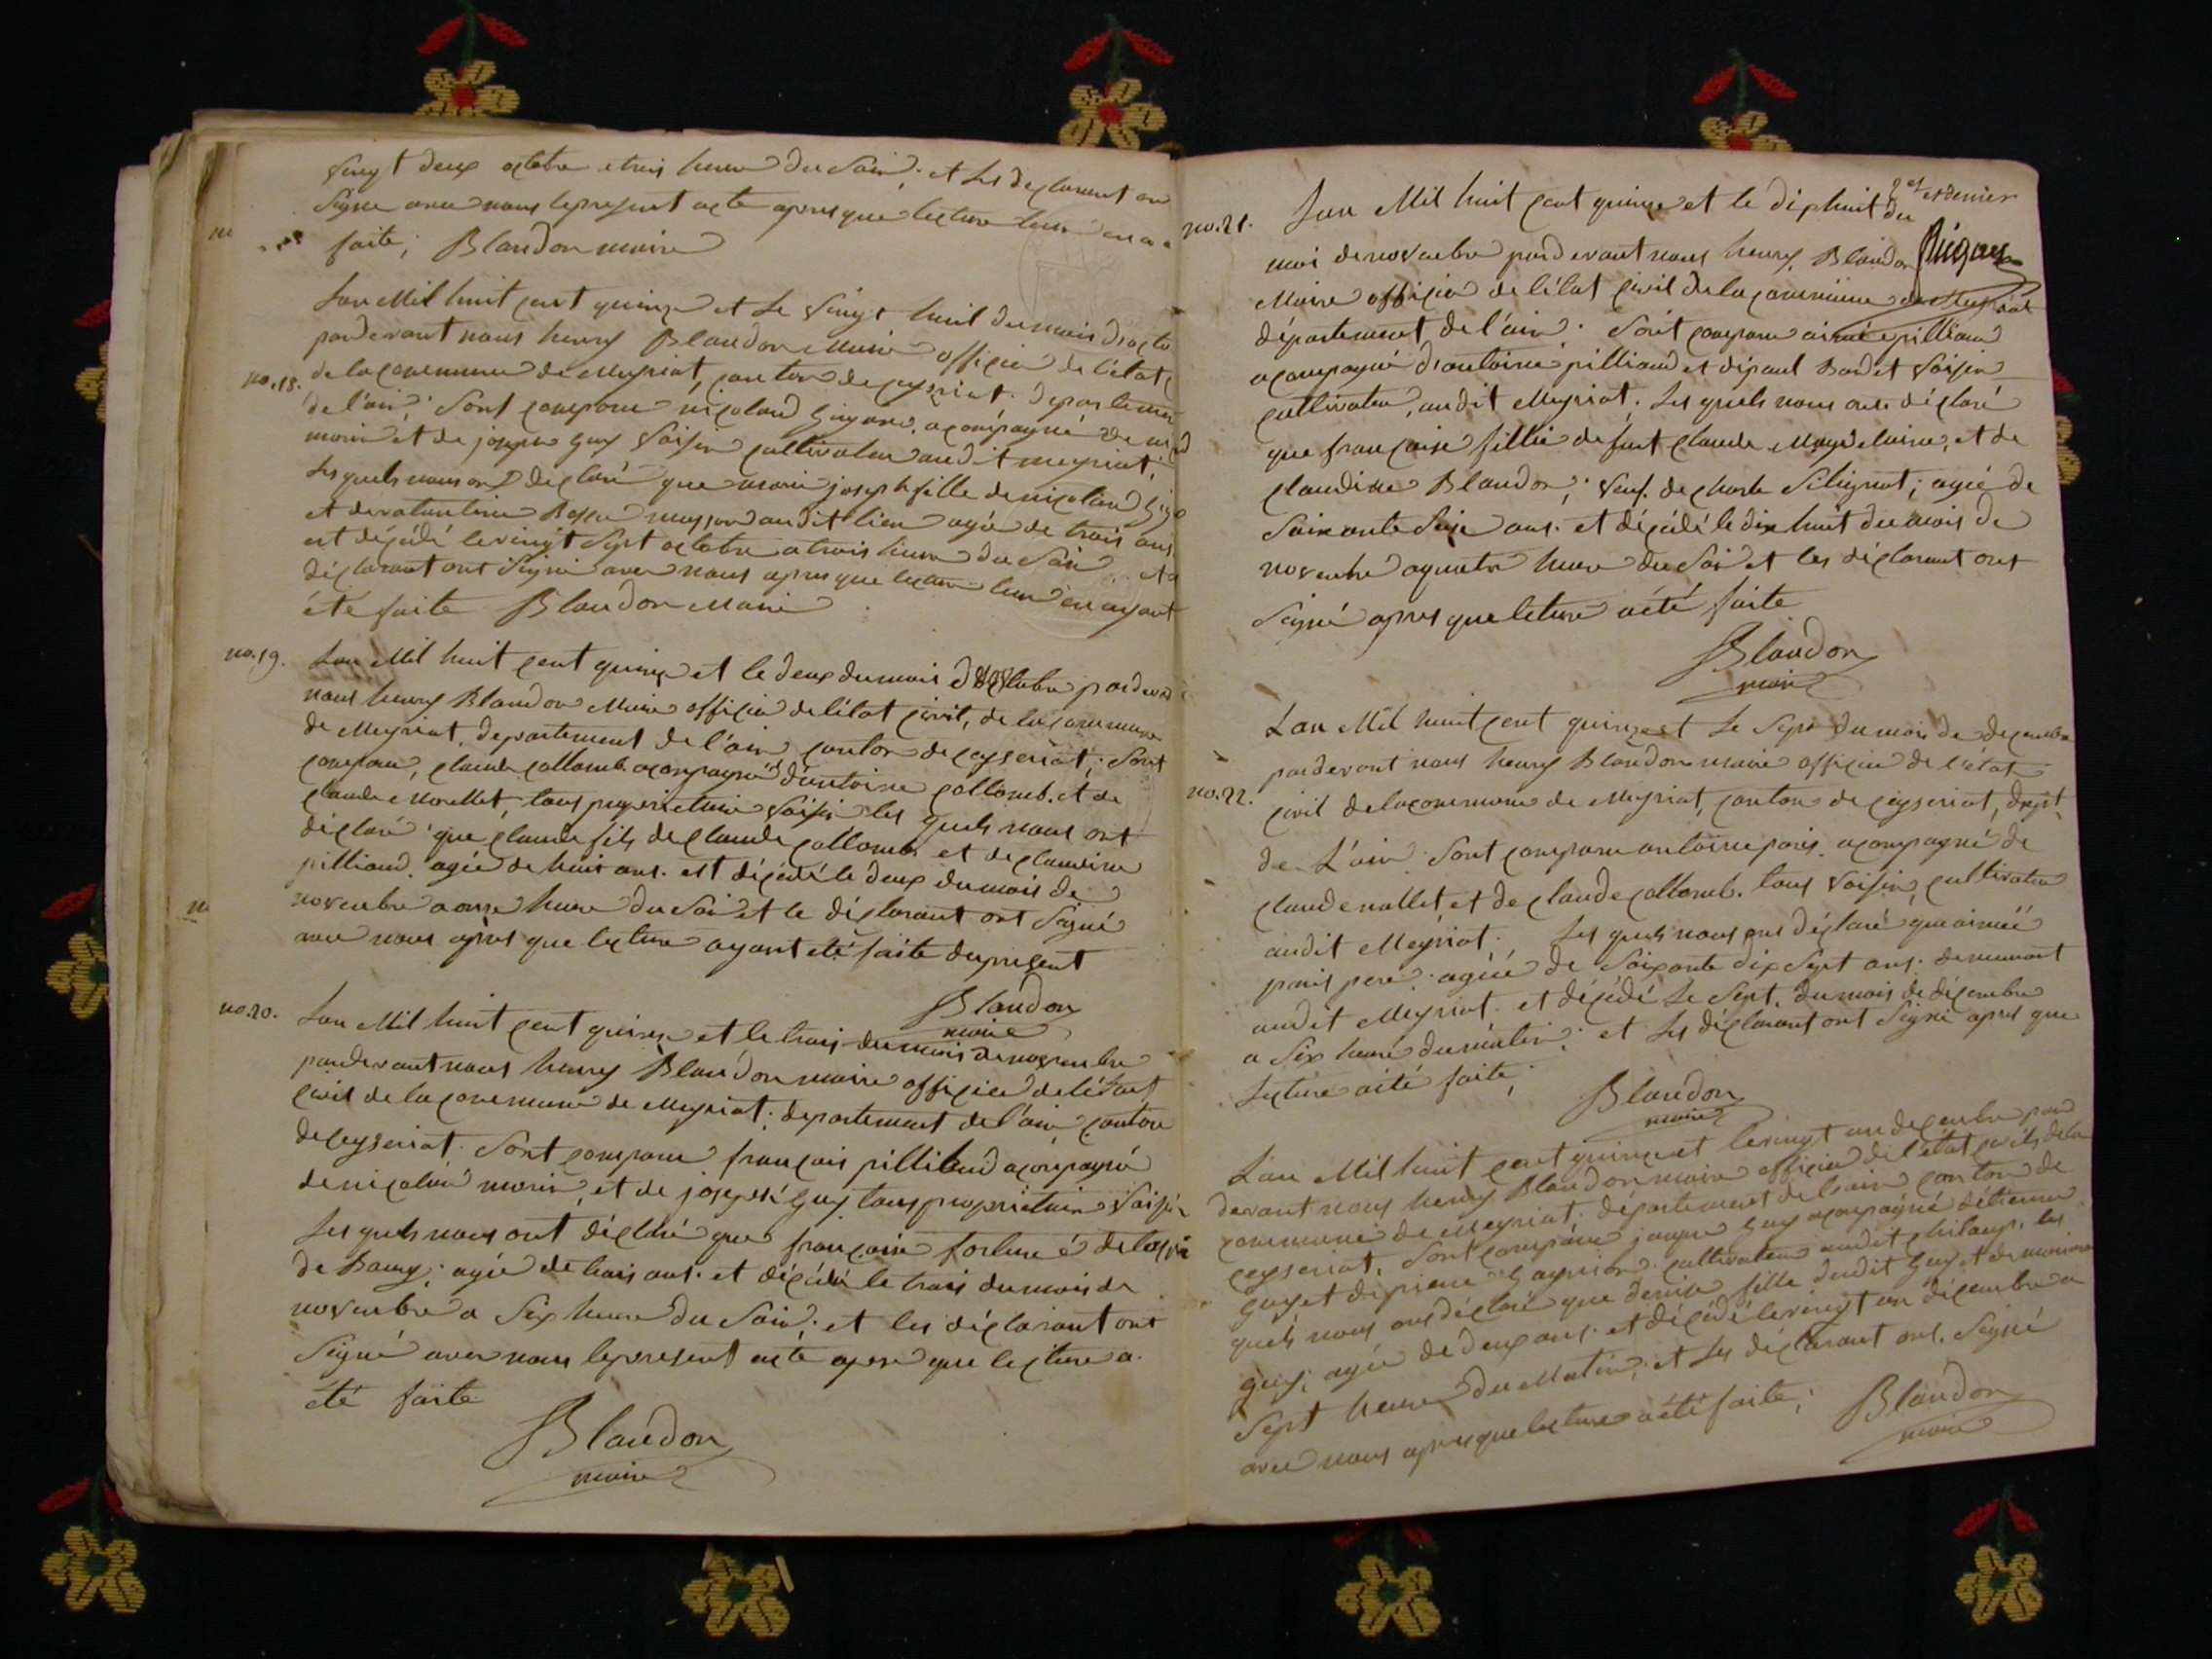 vingt deux octobre a trois heure du Soir, et Les declarant on
Signé avec nous le present acte apres que lecture leur en a
faite; Blandon maire
Lan Mil huit cent quinze et Le vingt huit du mois d'octo
pardevant nous henry Blandon Maire officier de l'état
no. 18. de la commune de Meyriat, canton de ceyseriat. departemen
de l'ain; Sont comparu nicolaud acompagné de
morin et de joseph Guy voisin cultivateur audit meyriat;
Les quels nous ont declaré que marie joseph fille de nicolaud
et de valantine masson audit lieu agée de trois ans
est décédé le vingt Sept octobre a trois heure du Soir et
déclarant ont Signé avec nous apres que lecture leur en ayant
été faite Blandon Maire
no. 19. Lan Mil huit cent quinze et le deux du mois pardevant
nous henry Blandon Maire officier de l'état civil, de la commune
de Meyriat, departement de l'ain canton de ceyseriat; Sont
comparu, claude collomb acompagné d'antoine collomb. et de
claude Morellet, tous propriettaire voisin les quels nous ont
déclaré que claude fils de claude collomb et de claudine
pilliaud. agée de huit ans. est décédé le deux du mois de
novembre a onze heure du Soir et le déclarant ont Signé
avec nous apres que lecture ayant été faite du present
Blandon
maire
no. 20. Lan Mil huit cent quinze et le trois du mois de novembre
pardevant nous henry Blandon maire officier de l'état
civil de la commune de Meyriat. departement de l'ain canton
de ceyseriat. Sont comparu français pilliaud acompagné
de nicolas morin, et de joseph Guy tous proprietaire voisin
Les quels nous ont déclaré que françoise fortuné de
de Bourg; agée de trois ans. et décédé le trois du mois de
novembre a Six heure du Soir; et les déclarant ont
Signé avec nous le present acte apres que lecture a
été faite
Blandon
maire
et dernier
no. 21. Lan Mil huit cent quinze et le dix huit du
moi de novembre pardevant nous henry Blandon
Maire officier de l'état civil de la commune de Meyriat
département de l'ain. Sont comparu aimé pilliaud
acompagné d'antoine pilliaud et de paul Bondet voisin
cultivateur, audit Meyriat. Les quels nous ont déclaré
que françoise fillie de fut claude Magdelaine, et de
claudine Blandon; veuf. de charle Silignat; agée de
Soixante Seize ans. et décédé le dix huit du mois de
novembre a quatre heure du Soir et les déclarant ont
Signé apres que leture a été faite
Blandon
maire
Lan Mil huit cent quinze et Le Sept du mois de decembre
pardevant nous henry Blandon maire officier de l'état
no. 22. civil de la commune de Meyriat, canton de ceyseriat, dept
de L'ain. Sont comparu antoine paris. acompagné de
claude nallet, et de claude collomb. tous voisin, cultivateur
audit Meyriat. Les quels nous ont déclaré que aimé
paris pere. agée de Soixante dix Sept ans. demeurant
audit Meyriat. et décédé Le Sept. du mois de décembre
a Six heure du matin; et Les déclarant ont Signé apres que
Lecture a été faite;
Blandon
maire
Lan Mil huit cent quinze et le vingt un decembre par
devant nous henry Blandon maire officier de l'état civils de la
commune de Meyriat. département de l'ain canton de
ceyseriat. Sont comparu jaque Guy acompagné détienne
Guy et de piere cultivateur audit les
quels nous ont déclaré que denise fille dudit Guy et de
guy; agée de deux ans. et décédé le vingt un décembre a
Sept heure du Matin; et Les déclarant ont. Signé
avec nous apres que lecture a été faite;
Blandon
maire